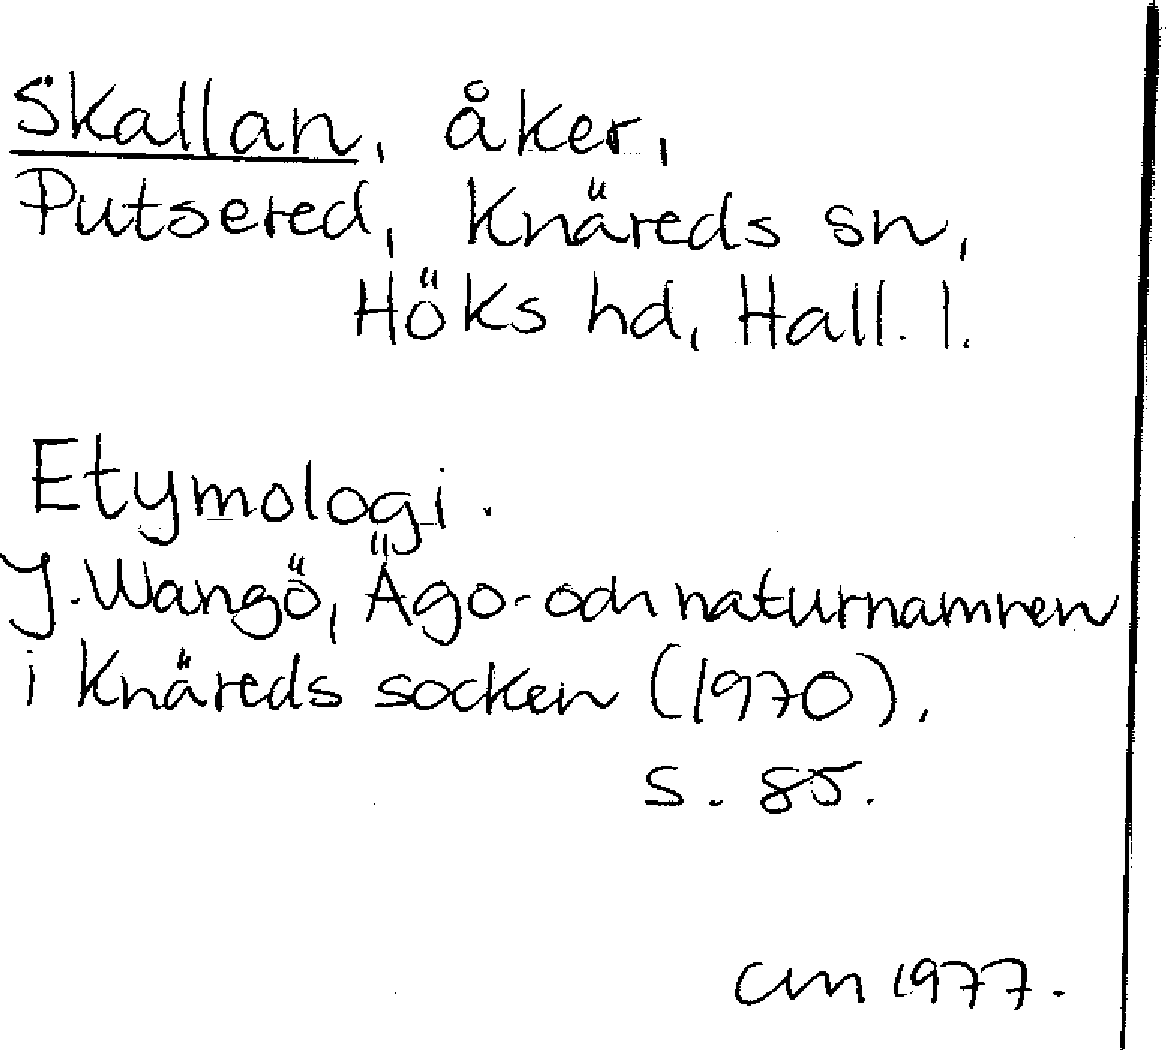 Skallan, åker,
Putsered, Knäreds sn,
Höks hd, Hall. l.
Etymologi.
J. Wangö, Ägo- och naturnamnen
i Knäreds socken (1970),
s. 85.
CM 1977.